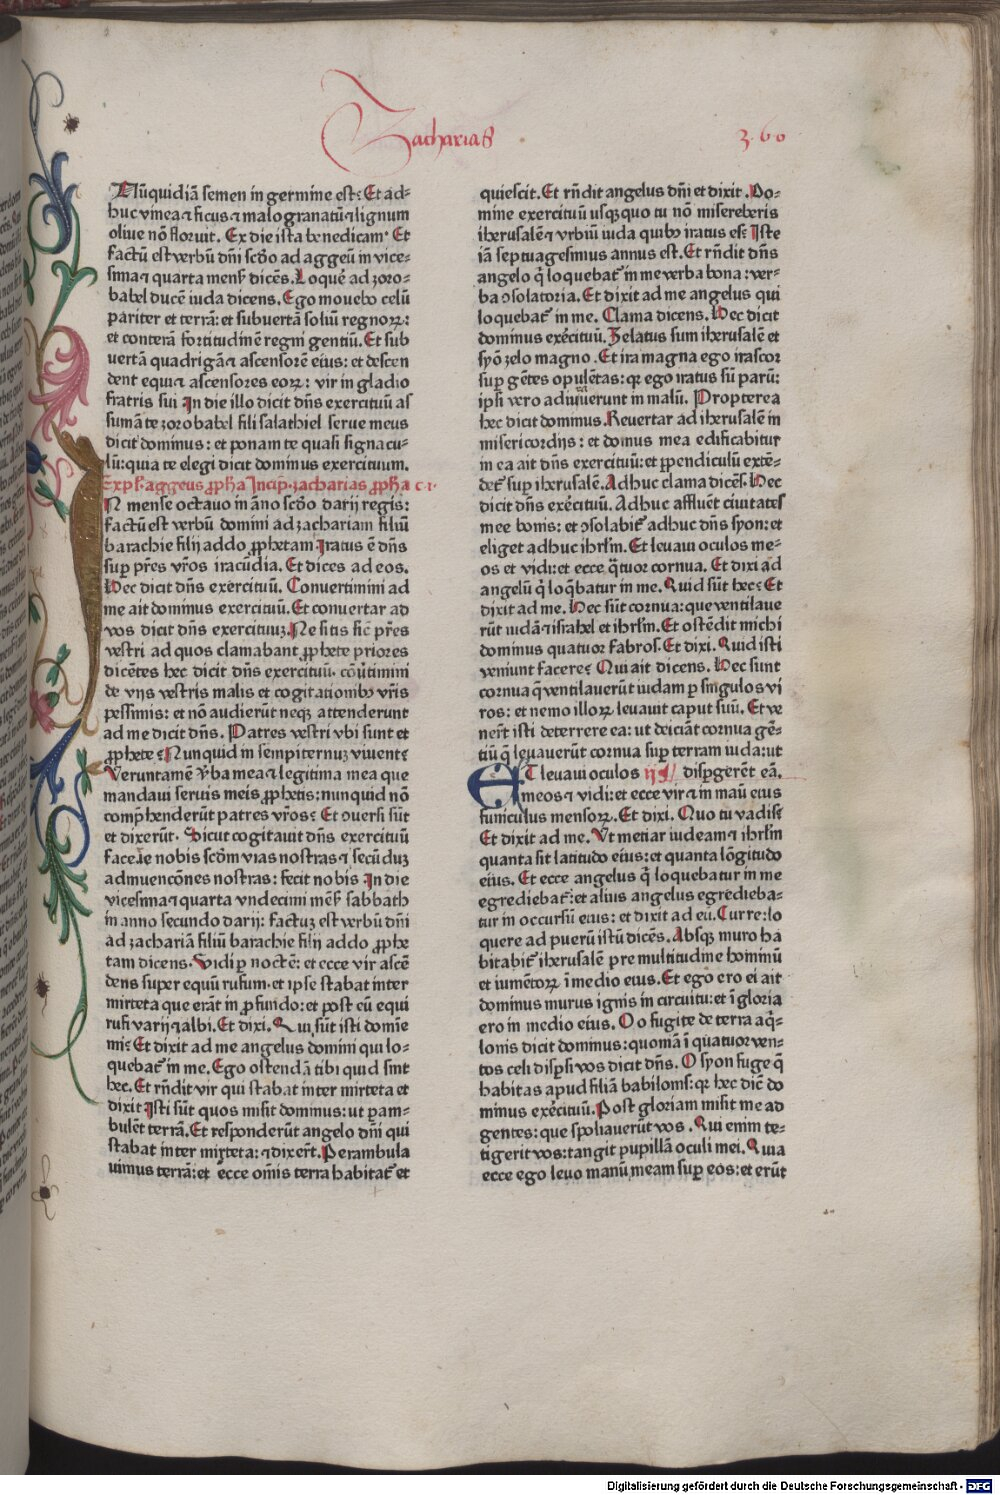 Zacharias
3.60
Nūquid iā semen in germine est: Et ad-
huc vinea ⁊ ficus ⁊ malogranatū ⁊ lignum
oliue nō floruit. Ex die ista benedicam. Et
factū est verbū dn̄i scd̄o ad aggeū in vice-
sima ⁊ quarta mens̄ dicēs. Loquē ad zoro-
babel ducē iuda dicens. Ego mouebo celū
pariter et terrā: et subuertā soliū regnoꝝ:
et conterā fortitudinē regni gentiū. Et sub
uertā quadrigā ⁊ ascensorē eius: et descen
dent equi ⁊ ascensores eoꝝ: vir in gladio
fratris sui In die illo dicit dn̄s exercituū as
sumā te zorobabel fili salathiel serue meus
dicit dominus: et ponam te quasi signacu-
lū: quia te elegi dicit dominus exercituum.
Expl̄. aggeus ꝓph̄a Incip̄. zacharias ꝓph̄a c. i.
N mense octauo in āno scd̄o darij regis:
factū est verbū domini ad zachariam filiū
barachie filij addo ꝓphetam. Iratus ē dn̄s
suꝑ pr̄es vr̄os iracūdia. Et dices ad eos.
Hec dicit dn̄s exercituū. Conuertimini ad
me ait dominus exercituū. Et conuertar ad
vos dicit dn̄s exercituuꝫ. Ne sitis sic̄ pr̄es
vestri ad quos clamabant ꝓphete priores
dicētes hec dicit dn̄s exercituū. cōūtimini
de vijs vestris malis et cogitationibꝰ vr̄is
pessimis: et nō audierūt neqꝫ attenderunt
ad me dicit dn̄s. Patres vestri vbi sunt et
ꝓphete: Nunquid in sempiternuꝫ viuent:
Veruntamē v̄ba mea ⁊ legitima mea que
mandaui seruis meis ꝓphetis: nunquid nō
comp̄henderūt patres vr̄os: Et ꝯuersi sūt
et dixerūt. Sicut cogitauit dn̄s exercituū
facere nobis scd̄m vias nostras ⁊ secūduꝫ
adinuencōnes nostras: fecit nobis In die
vicesima ⁊ quarta vndecimi mens̄ sabbath
in anno secundo darij: factuꝫ est verbū dn̄i
ad zachariā filiū barachie filij addo ꝓphe
tam dicens. Vidi ꝑ noctē: et ecce vir ascē
dens super equū rufum. et ipse stabat inter
mirteta que erāt in ꝓfundo: et post eū equi
rufi varij ⁊ albi. Et dixi. Qui sūt isti domīe
mi: Et dixit ad me angelus domini qui lo-
quebat̄ in me. Ego ostendā tibi quid sint
hec. Et rn̄dit vir qui stabat inter mirteta et
dixit Isti sūt quos misit dominus: ut ꝑam-
bulēt terrā. Et responderūt angelo dn̄i qui
stabat inter mirteta: ⁊ dixert̄. Perambula
uimus terrā: et ecce om̄is terra habitat̄ et
quiescit. Et rn̄dit angelus dn̄i et dixit. Do-
mine exercituū usqꝫquo tu nō misereberis
iherusalē ⁊ vrbiū iuda quibꝰ iratus es: Iste
iā septuagesimus annus est. Et rn̄dit dn̄s
angelo q̄ loquebat̄ in me verba bona: ver-
ba ꝯsolatoria. Et dixit ad me angelus qui
loquebat̄ in me. Clama dicens. Hec dicit
dominus exēcituū. Zelatus sum iherusalē et
syō zelo magno. Et ira magna ego irascor
suꝑ gētes opulētas: qꝛ ego iratus sū parū:
ipsi vero adiuuerunt in malū. Propterea
hec dicit dominus. Reuertar ad iherusalē in
misericordijs: et domus mea edificabitur
in ea ait dn̄s exercituū: et ꝑpendiculū extē-
det̄ suꝑ iherusalē. Adhuc clama dicēs. Hec
dicit dn̄s exēcituū. Adhuc affluēt ciuitates
mee bonis: et ꝯsolabit̄ adhuc dn̄s syon: et
eliget adhuc ihrlm̄. Et leuaui oculos me-
os et vidi: et ecce q̄tuor cornua. Et dixi ad
angelū q̄ loq̄batur in me. Quid sūt hec: Et
dixit ad me. Hec sūt cornua: que ventilaue
rūt iudā ⁊ israhel et ihrlm̄. Et ostēdit michi
dominus quatuor fabros. Et dixi. Quid isti
veniunt facere: Qui ait dicens. Hec sunt
cornua q̄ ventilauerūt iudam ꝑ singulos vi
ros: et nemo illoꝝ leuauit caput suū. Et ve
nert̄ isti deterrere ea: ut deiciāt cornua gē-
tiū q̄ leuauerūt cornua suꝑ terram iuda: ut
ET leuaui oculos ij disꝑgerēt eā.
meos ⁊ vidi: et ecce vir ⁊ in manū eius
funiculus mensoꝝ. Et dixi. Quo tu vadis:
Et dixit ad me. Ut metiar iudeam ⁊ ihrlm̄
quanta sit latitudo eius: et quanta lōgitudo
eius. Et ecce angelus q̄ loquebatur in me
egrediebat̄: et alius angelus egredieba-
tur in occursū eius: et dixit ad eū. Curre: lo
quere ad puerū istū dicēs. Absqꝫ muro ha
bitabit̄ iherusalē pre multitudine hominū
et iumētoꝝ ī medio eius. Et ego ero ei ait
dominus murus ignis in circuitu: et ī gloria
ero in medio eius. O o fugite de terra aq̄-
lonis dicit dominus: quoniā ī quatuor ven-
tos celi disꝑsi vos dicit dn̄s. O syon fuge q̄
habitas apud filiā babilonis: qꝛ hec dic̄ do
minus exēcituū. Post gloriam misit me ad
gentes: que spoliauerūt vos. Qui enim te-
tigerit vos: tangit pupillā oculi mei. Quia
ecce ego leuo manū meam suꝑ eos: et erūt
Digitalisierung gefördert durch die Deutsche Forschungsgemeinschaft - DFG